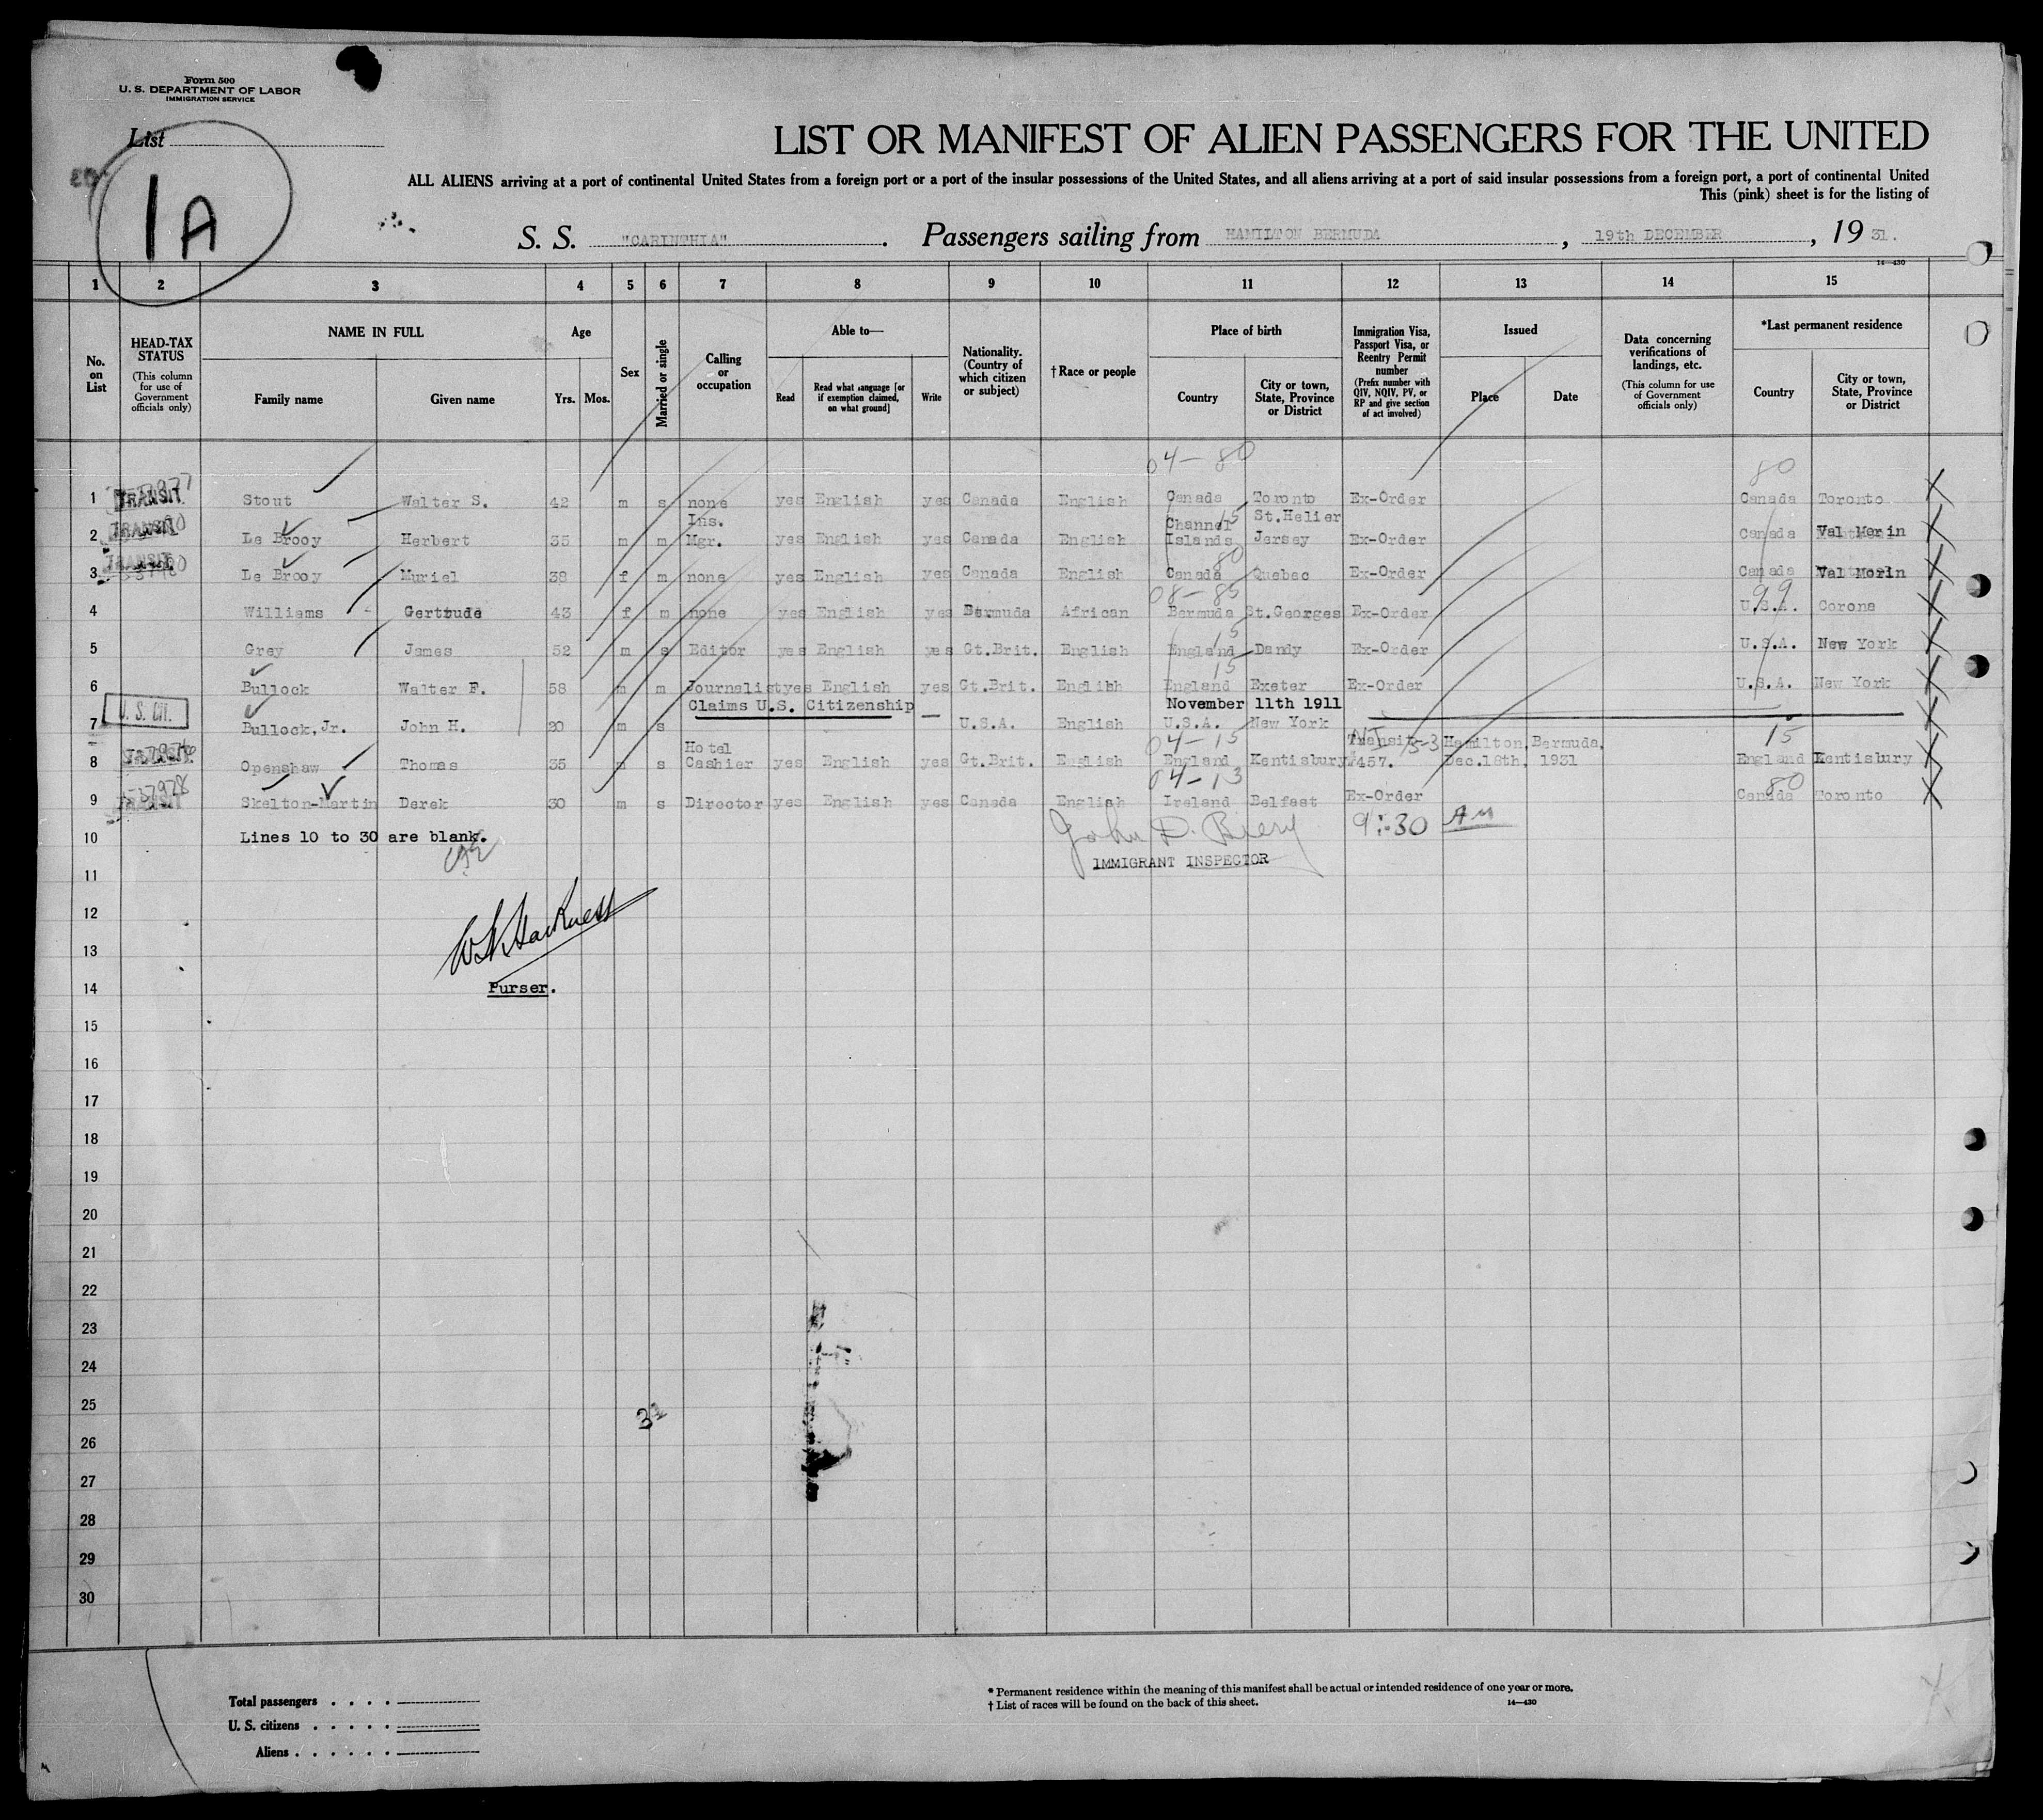 Form 500
U. S. DEPARTMENT OF LABOR
IMMIGRATION SERVICE
List
1A
LIST OR MANIFEST OF ALIEN PASSENGERS FOR THE UNITED
ALL ALIENS arriving at a port of continental United States from a foreign port or a port of the insular possessions of the United States, and all aliens arriving at a port of said insular possessions from a foreign port, a port of continental United
This (pink) sheet is for the listing of
S. S. "CARINTHIA". Passengers sailing from HAMILTON BERMUDA, 19th DECEMBER, 19 31.
14—430
1 2 3 4 5 6 7 8 9 10 11 12 13 14 15
No. on List
HEAD-TAX STATUS (This column for use of Government officials only)
NAME IN FULL Family name Given name
Age Yrs. Mos.
Sex
Married or single
Calling or occupation
Able to— Read Read what language [or if exemption claimed, on what ground] Write
Nationality. (Country of which citizen or subject)
†Race or people
Place of birth Country City or town, State, Province or District
Immigration Visa, Passport Visa, or Reentry Permit number (Prefix number with QIV, NQIV, PV, or RP and give section of act involved)
Issued Place Date
Data concerning verifications of landings, etc. (This column for use of Government officials only)
*Last permanent residence Country City or town, State, Province or District
04-80 80
1 TRANSIT Stout Walter S. 42 m s none yes English yes Canada English Canada Toronto Ex-Order Canada Toronto
2 TRANSIT Le Brooy Herbert 35 m m Ins. Mgr. yes English yes Canada English Channel Islands 15 St.Helier Jersey Ex-Order Canada Val Morin
3 TRANSIT Le Brooy Muriel 38 f m none yes English yes Canada English Canada 80 Quebec Ex-Order Canada Val Morin
08-85 99
4 Williams Gertrude 43 f m none yes English yes Bermuda African Bermuda St.Georges Ex-Order U.S.A. Corona
5 Grey James 52 m s Editor yes English yes Gt.Brit. English England 15 Dandy Ex-Order U.S.A. New York
6 Bullock Walter F. 58 m m Journalist yes English yes Gt.Brit. English England 15 Exeter Ex-Order U.S.A. New York
Claims U.S. Citizenship November 11th 1911
7 U. S. CIT. Bullock, Jr. John H. 20 m s — U.S.A. English U.S.A. New York
04-15 15
8 Openshaw Thomas 35 m s Hotel Cashier yes English yes Gt.Brit. English England Kentisbury Transit 457. Hamilton, Bermuda, Dec.18th, 1931 England Kentisbury
04-13 80
9 TRANSIT Skelton-Martin Derek 30 m s Director yes English yes Canada English Ireland Belfast Ex-Order Canada Toronto
10 Lines 10 to 30 are blank. John D. 9:30 AM
11 IMMIGRANT INSPECTOR
12
13 Harkness
14 Purser.
15
16
17
18
19
20
21
22
23
24
25
26
27
28
29
30
Total passengers . . . .
U. S. citizens . . . . .
Aliens . . . . . .
* Permanent residence within the meaning of this manifest shall be actual or intended residence of one year or more.
† List of races will be found on the back of this sheet.
14—430